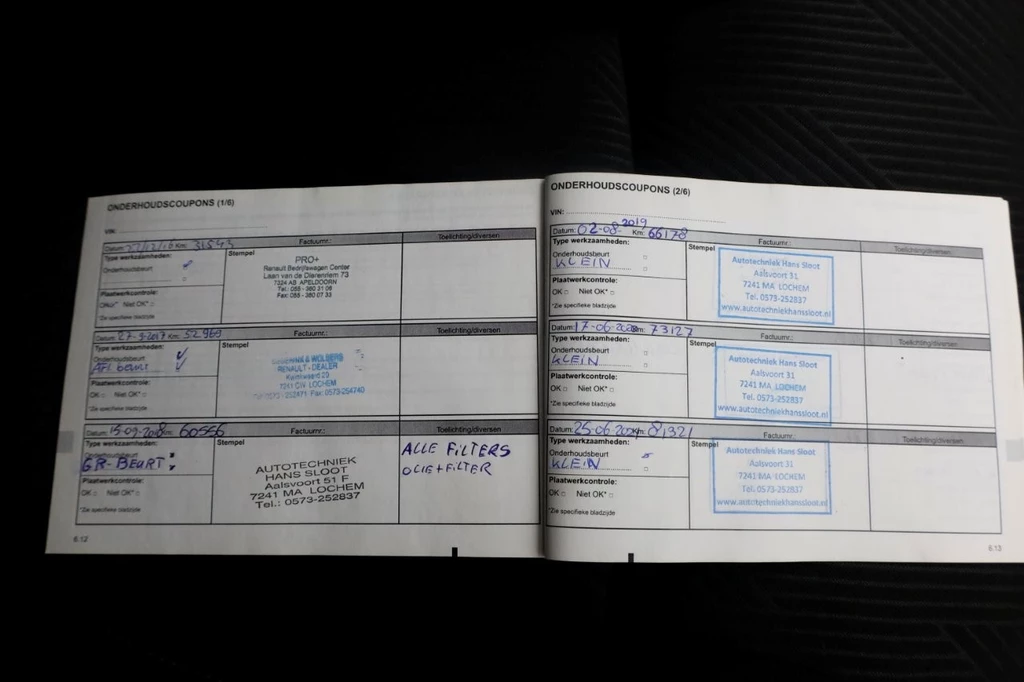 ONDERHOUDSCOUPONS (1/6)
VIN:
Datum: Km: 31543 Factuurnr.: Toelichting/diversen
Type werkzaamheden:
Onderhoudsbeurt
Plaatwerkcontrole:
OK Niet OK*
*Zie specifieke bladzijde
Stempel
PRO+
Renault Bedrijfswagen Center
Laan van de Dierenriem 73
7324 AB APELDOORN
Tel.: 055 - 360 31 06
Fax: 055 - 360 07 33
Datum: 27-9-2017 Km: 52969 Factuurnr.: Toelichting/diversen
Type werkzaamheden:
Onderhoudsbeurt
beurt
Plaatwerkcontrole:
OK Niet OK*
*Zie specifieke bladzijde
Stempel
& WOLBERS
RENAULT - DEALER
7241 CW LOCHEM
Fax: 0573-254740
Datum: 15-09-2018 Km: 60556 Factuurnr.: Toelichting/diversen
Type werkzaamheden:
Onderhoudsbeurt
GR-BEURT
Plaatwerkcontrole:
OK Niet OK*
*Zie specifieke bladzijde
Stempel
AUTOTECHNIEK
HANS SLOOT
Aalsvoort 51 F
7241 MA LOCHEM
Tel.: 0573-252837
ALLE FILTERS
OLIE+FILTER
6.12
ONDERHOUDSCOUPONS (2/6)
VIN:
Datum: 02-08-2019 Km: 66178 Factuurnr.: Toelichting/diversen
Type werkzaamheden:
Onderhoudsbeurt
KLEIN
Plaatwerkcontrole:
OK Niet OK*
*Zie specifieke bladzijde
Stempel
Autotechniek Hans Sloot
Aalsvoort 31
7241 MA LOCHEM
Tel. 0573-252837
www.autotechniekhanssloot.nl
Datum: 17-06-2020 Km: 73127 Factuurnr.: Toelichting/diversen
Type werkzaamheden:
Onderhoudsbeurt
KLEIN
Plaatwerkcontrole:
OK Niet OK*
*Zie specifieke bladzijde
Stempel
Autotechniek Hans Sloot
Aalsvoort 31
7241 MA LOCHEM
Tel. 0573-252837
www.autotechniekhanssloot.nl
Datum: 25-06-2021 Km: 81321 Factuurnr.: Toelichting/diversen
Type werkzaamheden:
Onderhoudsbeurt
KLEIN
Plaatwerkcontrole:
OK Niet OK*
*Zie specifieke bladzijde
Stempel
Autotechniek Hans Sloot
Aalsvoort 31
7241 MA LOCHEM
Tel. 0573-252837
www.autotechniekhanssloot.nl
6.13